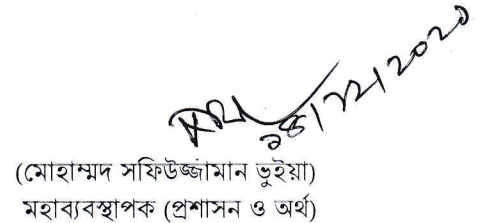 ২৪/১২/২০২০
(মোহাম্মদ সফিউজ্জামান ভুইয়া)
মহাব্যবস্থাপক (প্রশাসন ও অর্থ)